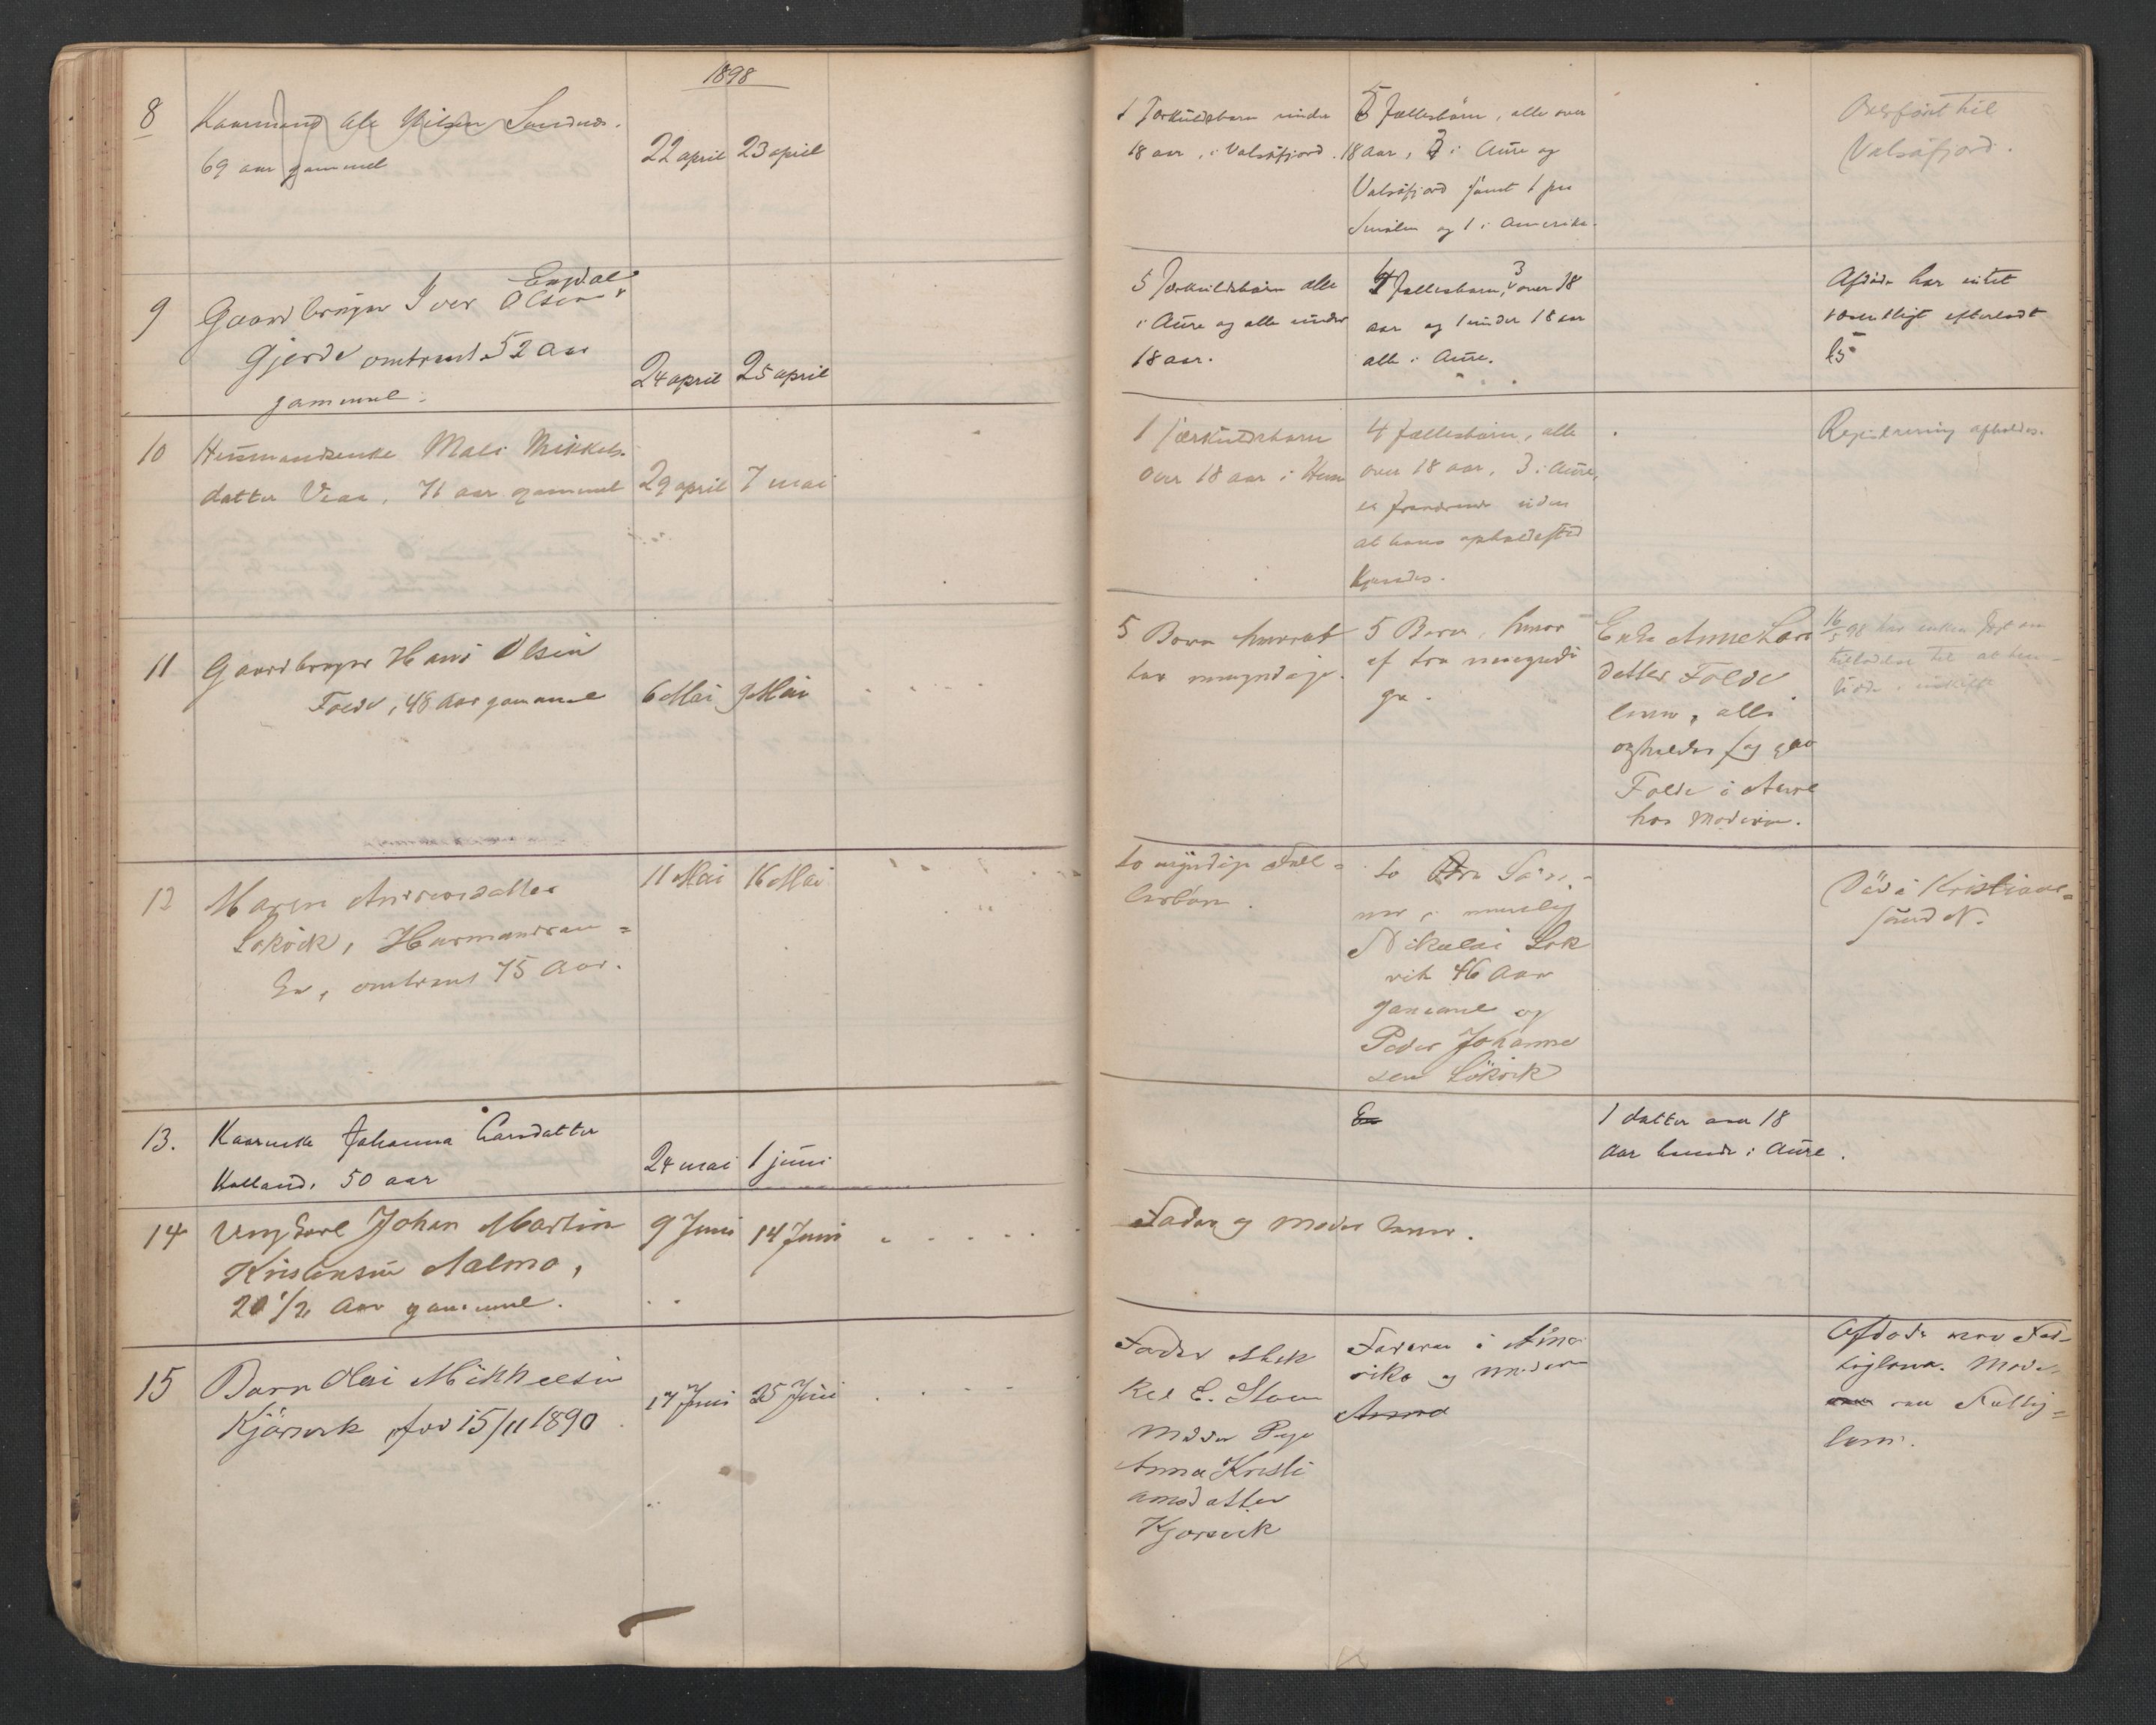 1898
8
Kaarmand Ole Nilsen Sundnes.
69 aar gammel
22 april 23 april
1 Særkuldsbarn under
18 aar, i Valsøfjord.
5 Fællesbørn, alle over
18 aar, 3 i Aure og
Valsøfjord samt 1 paa
Smølen og 1 i Amerika.
Overført til
Valsøfjord.
9
Engdal
Gaardbruger Iver Olsen
Gjerde omtrent 52 Aar
gammel.
24 april 25 april
5 Særkuldsbørn alle
i Aure og alle under
18 aar.
4 Fællesbørn, 3 over 18
aar og 1 under 18 aar
alle i Aure.
Afdøde har intet
væsentligt efterladt
10
Husmandsenke Mali Mikkels-
datter Vean, 71 aar gammel
29 april 7 mai
1 særkuldsbarn
over 18 aar i Hemne
4 fællesbørn, alle
over 18 aar, 3 i Aure,
en fraværende uden
at hans opholdssted
kjendes.
Registrering afholdes.
11
Gaardbruger Hans Olsen
Folde, 48 Aar gammel
6 Mai 9 Mai
5 Børn hvoraf
tre umyndige.
5 Børn, hvor
af tre umyndi
ge.
Enke Anne Lars
datter Folde
lever, alle
opholder sig paa
Folde i Aure
hos Moderen.
16/5 98 har enken søgt om
tilladelse til at hen-
sidde i uskifte
12
Maren Andersdatter
Løkvik, Husmandsen=
ke, omtrent 75 Aar.
11 Mai 16 Mai
to myndige Fæl=
lesbørn.
to Søn-
ner, nemlig
Nikolai Løk
vik 46 Aar
gammel og
Peder Johanne
sen Løkvik
Død i Kristians=
sund N.
13.
Kaarenke Johanna Larsdatter
Kolland, 50 aar
24 mai 1 juni
1 datter over 18
aar boende i Aure.
14
Ungkarl Johan Martin
Kristensen Aalmo,
20 1/2 Aar gammel.
9 Juni 14 Juni
Fader og Moder lever.
15
Barn Olai Mikkelsen
Kjørsvik født 15/11 1890
17 Juni 25 Juni
Fader Mik
kel E. Stom
Moder Pige
Anna Kristi
ansdatter
Kjørsvik
Faderen i Ame
rika og Moderen
Anna
Afdøde var Fat-
tiglem. Mode-
ren var Fattig=
lem.